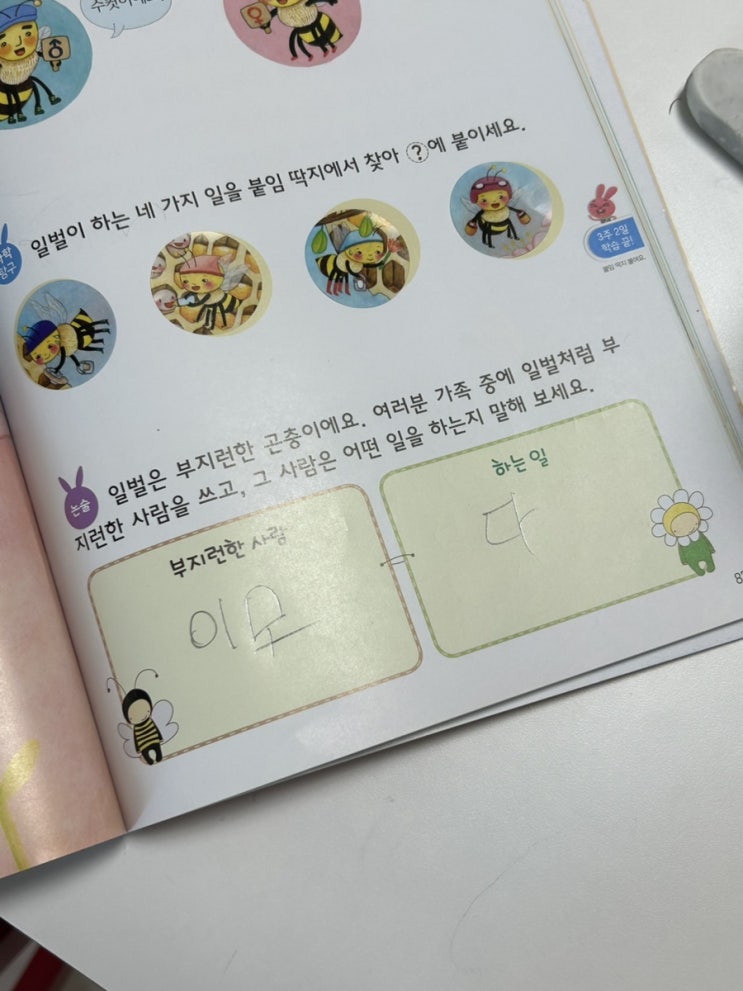 일벌이 하는 네 가지 일을 붙임 딱지에서 찾아 ?에 붙이세요.
3주 2일
학습 끝!
붙임 딱지 붙여요.
논술
일벌은 부지런한 곤충이에요. 여러분 가족 중에 일벌처럼 부
지런한 사람을 쓰고, 그 사람은 어떤 일을 하는지 말해 보세요.
부지런한 사람
이모
하는 일
다